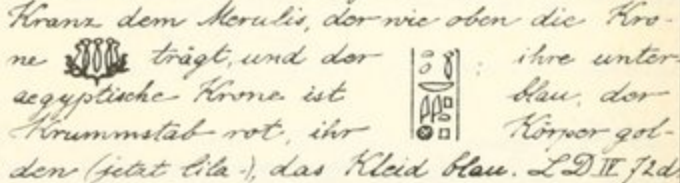 Kranz dem Merulis, der wie oben die Kro-
ne trägt, und der : ihre unter-
aegyptische Krone ist blau, der
Krummstab rot, ihr Körper gol-
den (jetzt lila-), das Kleid blau. LD IV 72d,